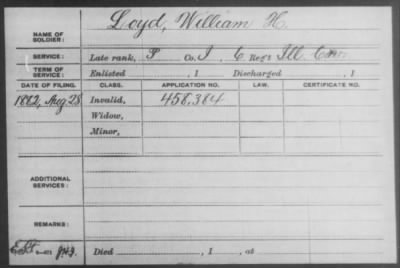 Loyd, William H.
NAME OF SOLDIER:
SERVICE: Late rank, P Co. I, 6 Reg't Ill. Cav.
TERM OF SERVICE: Enlisted , 1 Discharged , 1
DATE OF FILING. CLASS. APPLICATION NO. LAW. CERTIFICATE NO.
1882, Aug 28 Invalid, 458,384
Widow,
Minor,
ADDITIONAL SERVICES:
REMARKS:
Died , 1 , at